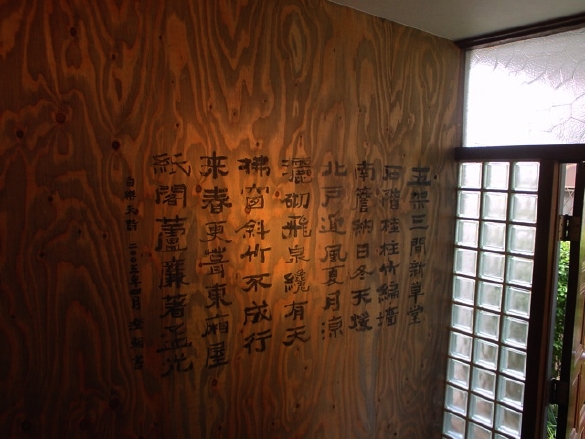 五架三間新草堂
石階桂柱竹編墻
南簷納日冬天暖
北戸迎風夏月涼
灑砌飛泉纔有点
拂窗斜竹不成行
来春更葺東廂屋
紙閣蘆簾著孟光
白楽天詩 二〇〇五年